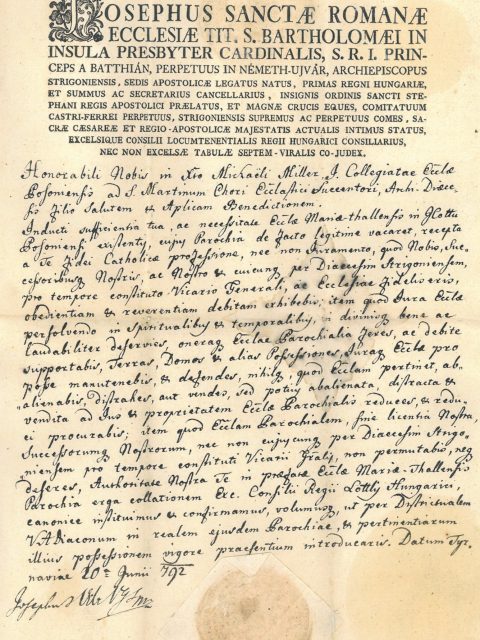 JOSEPHUS SANCTÆ ROMANÆ
ECCLESIÆ TIT. S. BARTHOLOMÆI IN
INSULA PRESBYTER CARDINALIS, S. R. I. PRIN-
CEPS A BATTHIÁN, PERPETUUS IN NÉMETH-UJVÁR, ARCHIEPISCOPUS
STRIGONIENSIS, SEDIS APOSTOLICÆ LEGATUS NATUS, PRIMAS REGNI HUNGARIÆ,
ET SUMMUS AC SECRETARIUS CANCELLARIUS, INSIGNIS ORDINIS SANCTI STE-
PHANI REGIS APOSTOLICI PRÆLATUS, ET MAGNÆ CRUCIS EQUES, COMITATUUM
CASTRI-FERREI PERPETUUS, STRIGONIENSIS SUPREMUS AC PERPETUUS COMES, SA-
CRÆ CÆSAREÆ ET REGIO-APOSTOLICÆ MAJESTATIS ACTUALIS INTIMUS STATUS,
EXCELSIQUE CONSILII LOCUMTENENTIALIS REGII HUNGARICI CONSILIARIUS,
NEC NON EXCELSÆ TABULÆ SEPTEM-VIRALIS CO-JUDEX.
Honorabili Nobis in Xto Michaëli Miller, I. Collegiatae Ecclae
Posoniensis ad S. Martinum Chori Ecclastici Succentori, Archi Diæce-
sis Filio Salutem & Aplicam Benedictionem.
Inducti sufficientia tua, ac necessitate Ecclae Mariæ-thallensis in Cottu
Posoniensi existentis, cujus Parochia de facto legitime vacaret, recepta
a Te Fidei Catholicæ professione, nec non Juramento, quod Nobis, Suc-
cessoribusq Nostris, ac Nostro & cujuscunq per Diæcesim Strigoniensem,
pro tempore constituto Vicario Generali, ac Ecclesiae fidelis eris,
obedientiam & reverentiam debitam exhibebis; item quod Jura Ecclae
persolvendo in Spiritualibus & temporalibus, in divinisq bene ac
laudabiliter deservies, oneraq Ecclae Parochialis feres, ac debite
supportabis, Terras, Domos & alias Possessiones, Juraq Ecclae pro
posse manutenebis, & defendes, nihilq, quod Ecclam pertinet, ab-
alienabis, distrahes, aut vendes, sed potius abalienata, distracta &
vendita ad Jus & proprietatem Ecclae Parochialis reduces, & redu-
ci procurabis; item quod Ecclam Parochialem, sine licentia Nostra,
Successorumq Nostrorum, nec non cujuscunq per Diæcesim Strigo-
niensem pro tempore constituti Vicarii Gralis, non permutabis, neq
deseres, Authoritate Nostra Te in præfatae Ecclae Mariæ-Thallensis
Parochia erga collationem Exc. Consilii Regii Lottlis Hungarici,
canonice instituimus & confirmamus, volumusq, ut per Districtualem
V. A. Diaconum in realem ejusdem Parochiæ, & pertinentiarum
illius possessionem vigore præsentium introducaris. Datum Tyr-
naviae 20a Junii 792
Josephus